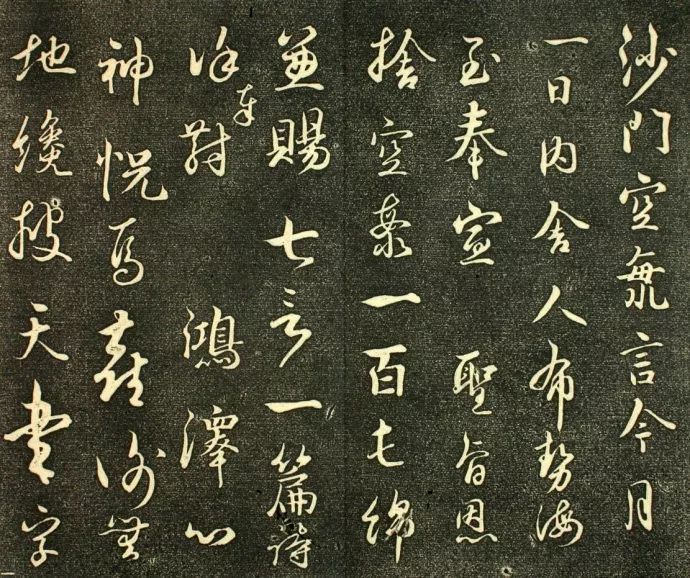 沙門空海言今月
一日内舍人布勢海
至奉宣 聖旨恩
捨空海一百屯綿
兼賜七言一篇詩
奉對 鴻澤心
神怳焉喜謝無
地纔披天書字